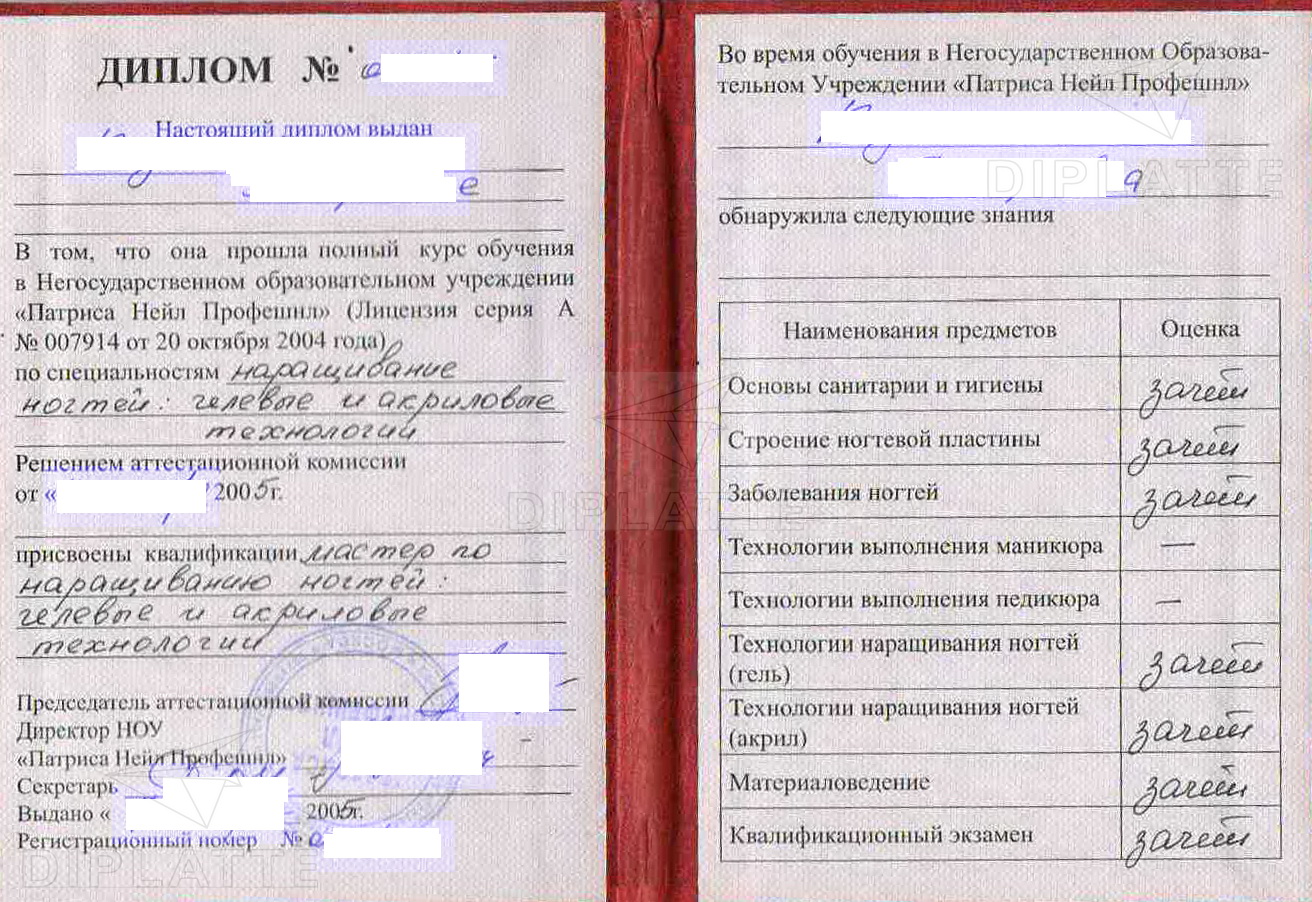 ДИПЛОМ №
Настоящий диплом выдан
е
В том, что она прошла полный курс обучения
в Негосударственном образовательном учреждении
«Патриса Нейл Профешнл» (Лицензия серия А
№ 007914 от 20 октября 2004 года)
по специальностям наращивание
ногтей: гелевые и акриловые
технологии
Решением аттестационной комиссии
от « 2005г.
присвоены квалификации мастер по
наращиванию ногтей:
гелевые и акриловые
технологии
Председатель аттестационной комиссии
Директор НОУ
«Патриса Нейл Профешнл»
Секретарь
Выдано « 2005г.
Регистрационный номер №
DIPLATTE
Во время обучения в Негосударственном Образова-
тельном Учреждении «Патриса Нейл Профешнл»
DIPLATTE
обнаружила следующие знания
Наименования предметов Оценка
Основы санитарии и гигиены зачет
Строение ногтевой пластины зачет
Заболевания ногтей зачет
DIPLATTE
Технологии выполнения маникюра —
Технологии выполнения педикюра —
Технологии наращивания ногтей
(гель) зачет
Технологии наращивания ногтей
(акрил) зачет
Материаловедение зачет
Квалификационный экзамен зачет